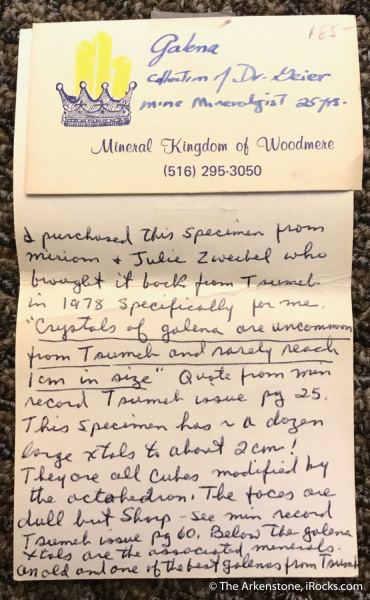 $85-
Galena
Collection of Dr. Geier
mine Mineralogist 25 yrs.
Mineral Kingdom of Woodmere
(516) 295-3050
I purchased this specimen from
Miriam + Julie Zweibel who
brought it back from Tsumeb
in 1978 specifically for me.
"Crystals of galena are uncommon
from Tsumeb and rarely reach
1cm in size" Quote from min
record Tsumeb issue pg 25.
This specimen has ~ a dozen
large xtals to about 2cm!
They are all cubes modified by
the octahedron. The faces are
dull but sharp - see min record
Tsumeb issue pg 60. Below the galena
xtals are the associated minerals.
an old and one of the best galenas from Tsumeb
© The Arkenstone, iRocks.com